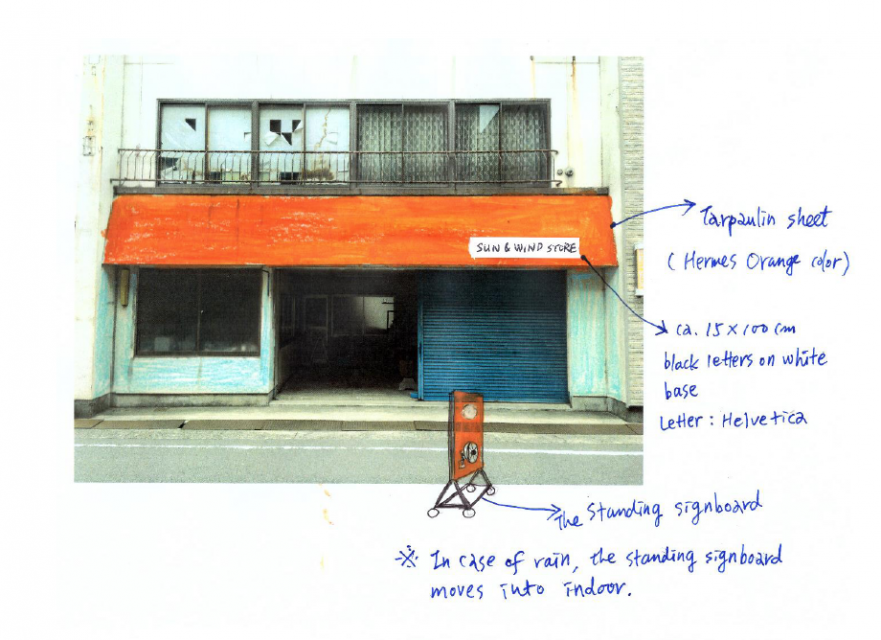 SUN & WIND STORE
Tarpaulin sheet
(Hermes Orange color)
ca. 15×100 cm
black letters on white
base
Letter : Helvetica
The standing signboard
※ In case of rain, the standing signboard
moves into indoor.